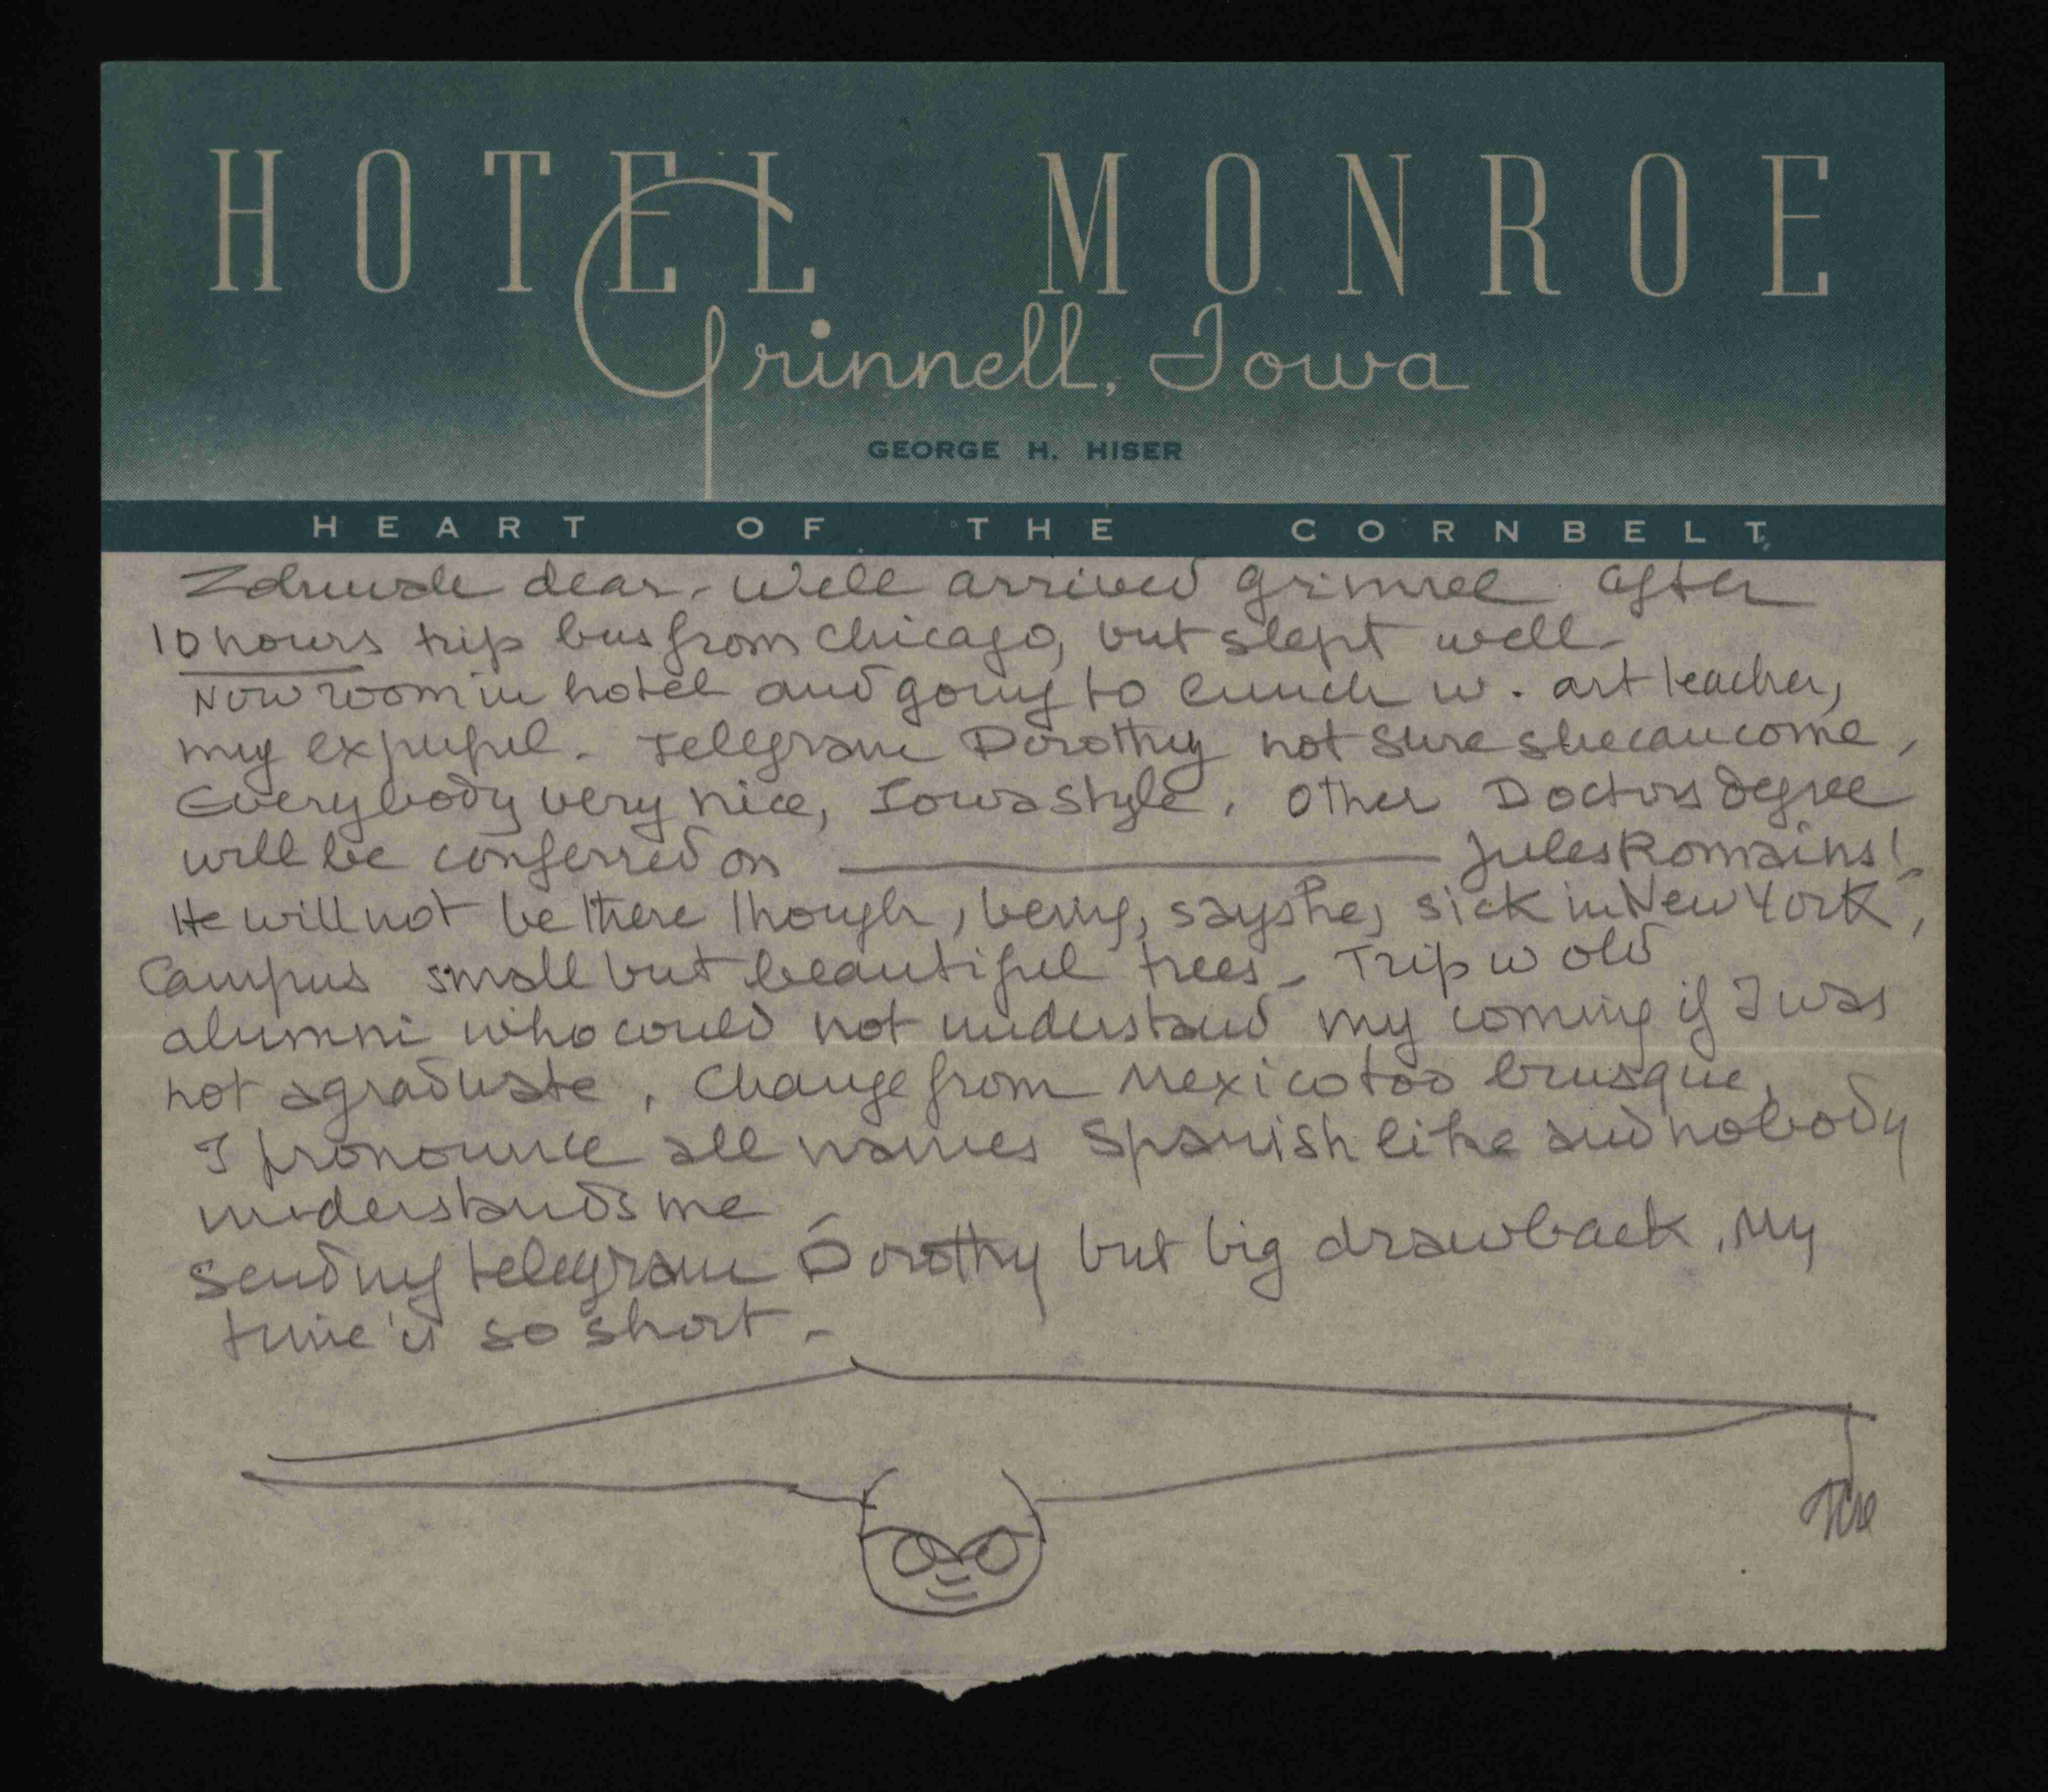 HOTEL MONROE
Grinnell, Iowa
GEORGE H. HISER
HEART OF THE CORNBELT
dear. Well arrived Grinnel after
10 hours trip bus from Chicago, but slept well.
Now room in hotel and going to lunch w. art teacher,
my ex pupil. Telegram Dorothy not sure she can come,
Everybody very nice, Iowa style. Other Doctors degree
will be conferred on ——— Jules Romains!
He will not be there though, being, says he, sick in New York,
Campus small but beautiful trees - Trip w old
alumni who could not understand my coming if I was
not a graduate. Change from Mexico too brusque,
I pronounce all names Spanish like and nobody
understands me
Sending telegram Dorothy but big drawback, My
time is so short -